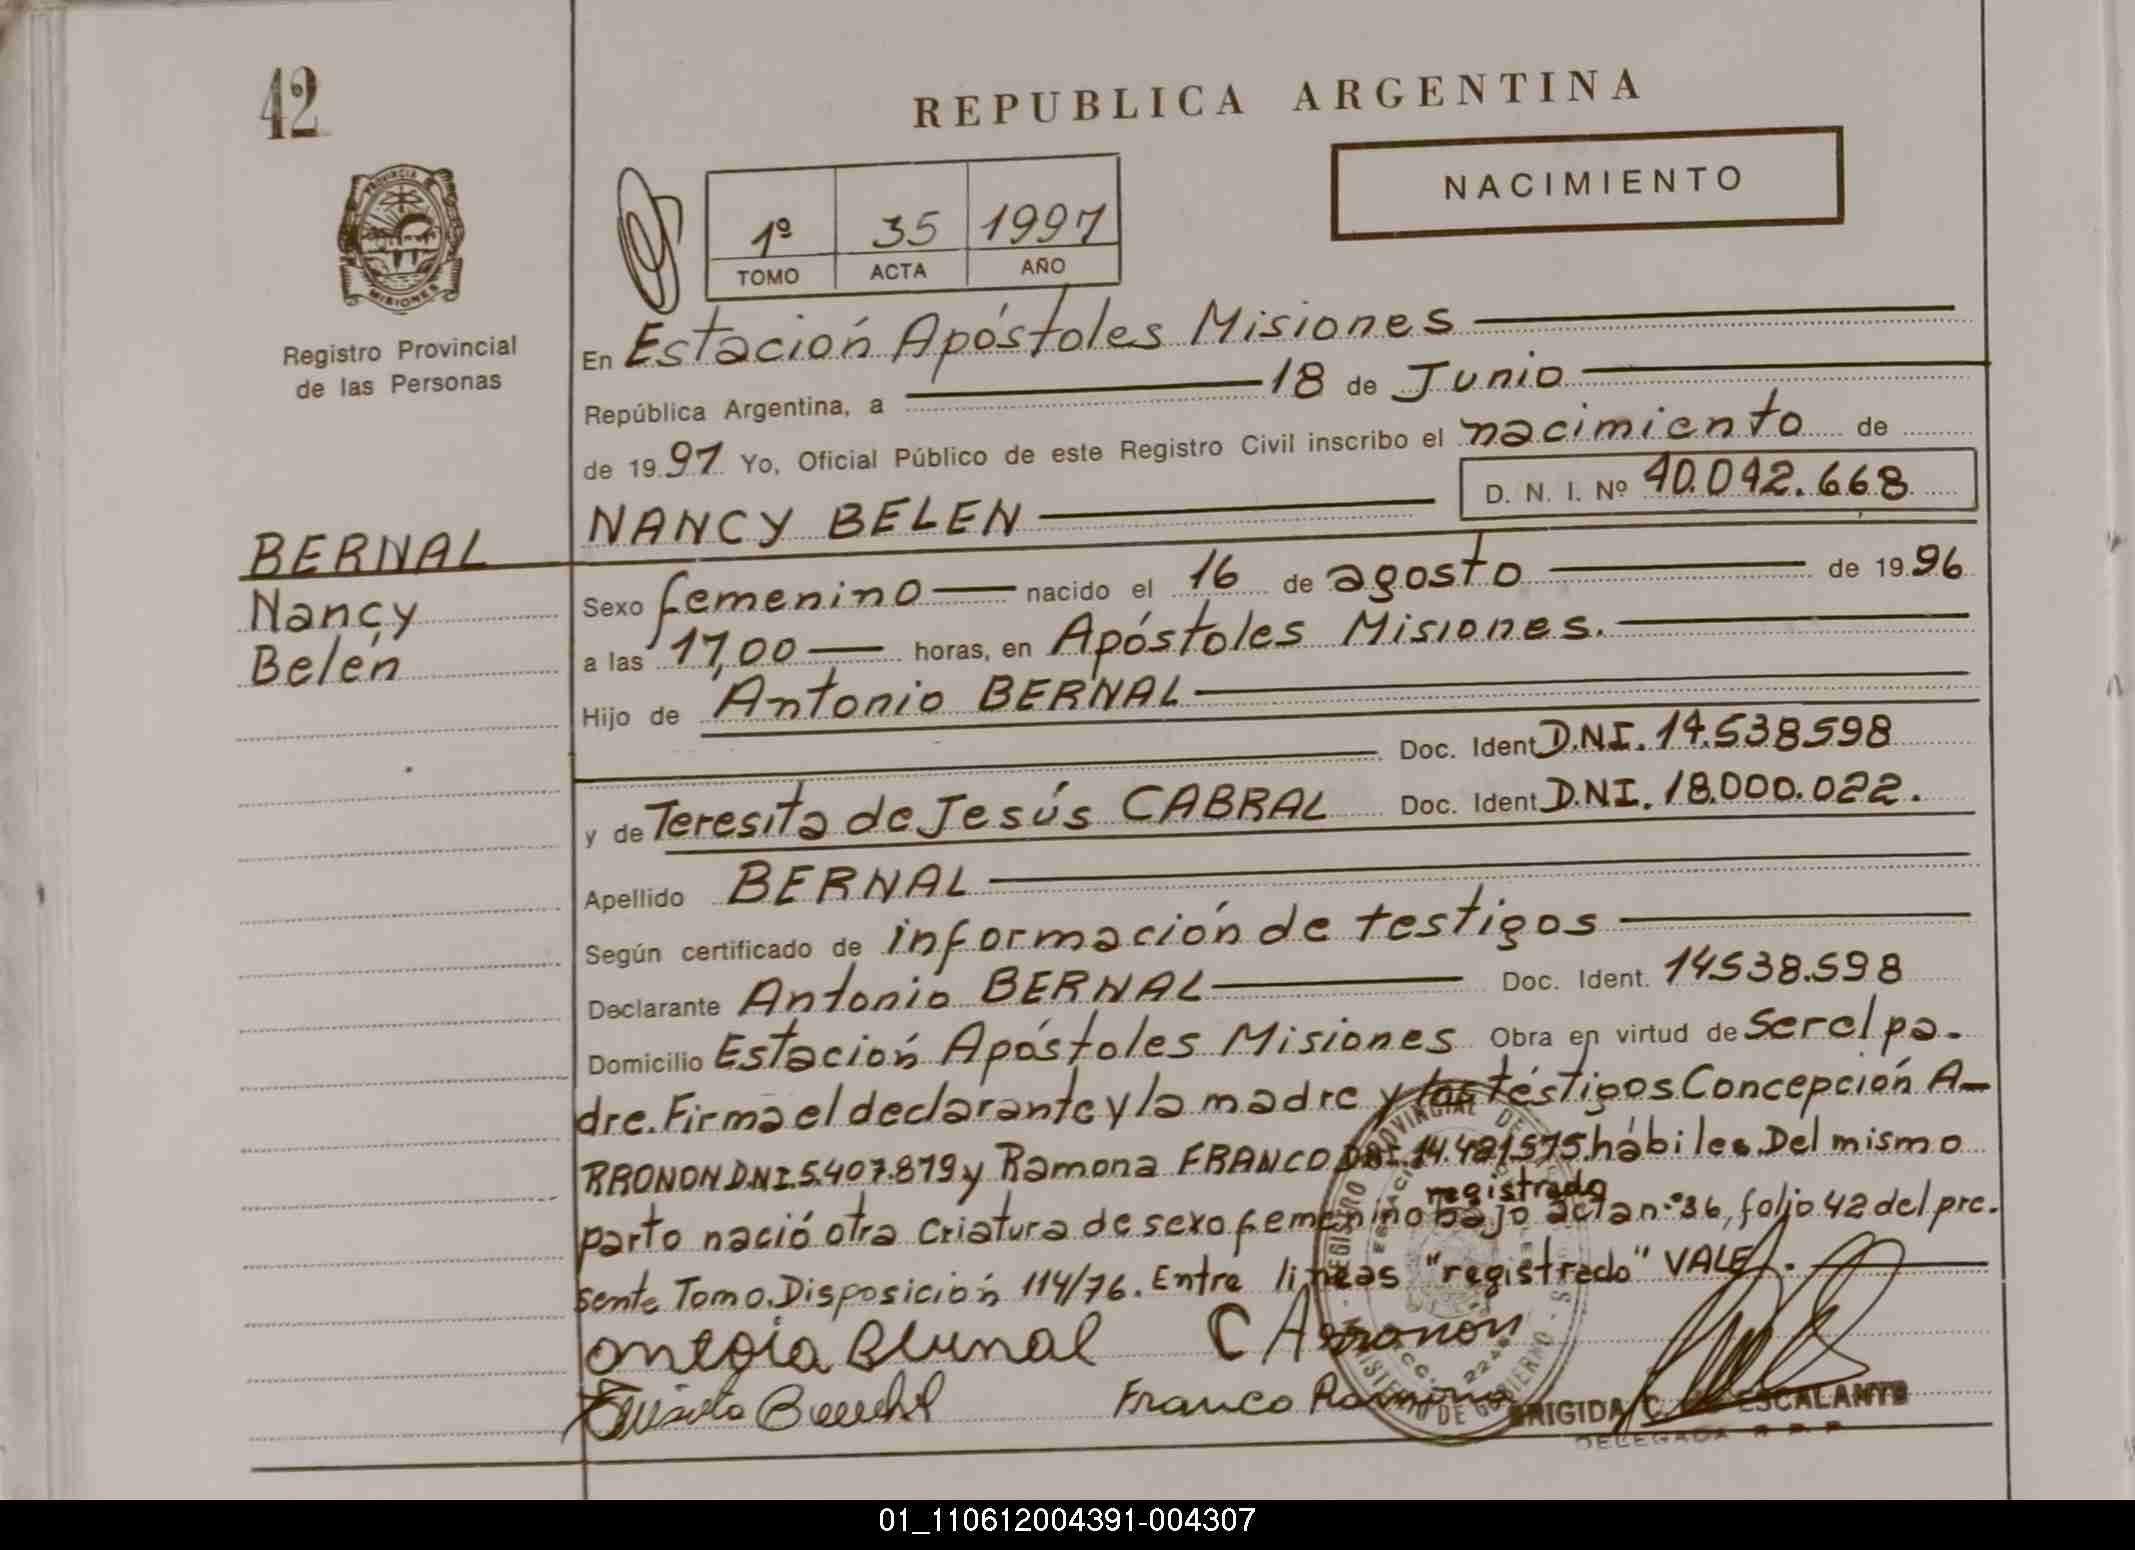 42
REPUBLICA ARGENTINA
NACIMIENTO
PROVINCIA
MISIONES
Registro Provincial
de las Personas
1º 35 1997
TOMO ACTA AÑO
En Estación Apóstoles Misiones
República Argentina, a 18 de Junio
de 19 97 Yo, Oficial Público de este Registro Civil inscribo el nacimiento de
D. N. I. Nº 40.042.668
NANCY BELEN
BERNAL
Nancy
Belén
Sexo femenino nacido el 16 de agosto de 19 96
a las 17,00 horas, en Apóstoles Misiones.
Hijo de Antonio BERNAL
Doc. Ident D.N.I. 14.538598
y de Teresita de Jesús CABRAL Doc. Ident D.N.I. 18.000.022.
Apellido BERNAL
Según certificado de información de testigos
Declarante Antonio BERNAL Doc. Ident. 14538.598
Domicilio Estación Apóstoles Misiones Obra en virtud de Ser el pa-
dre. Firma el declarante y la madre y los téstigos Concepción A-
RRONON D.N.I. 5.407.879 y Ramona FRANCO D.N.I. 14.421.575 hábiles. Del mismo
registrado
parto nació otra criatura de sexo femenino bajo acta n.º 36, folio 42 del pre-
sente Tomo. Disposición 114/76. Entre lineas "registrado" VALE.
C Arronón
Franco Ramona
BRIGIDA C. ESCALANTE
DELEGADA R P P
01_110612004391-004307